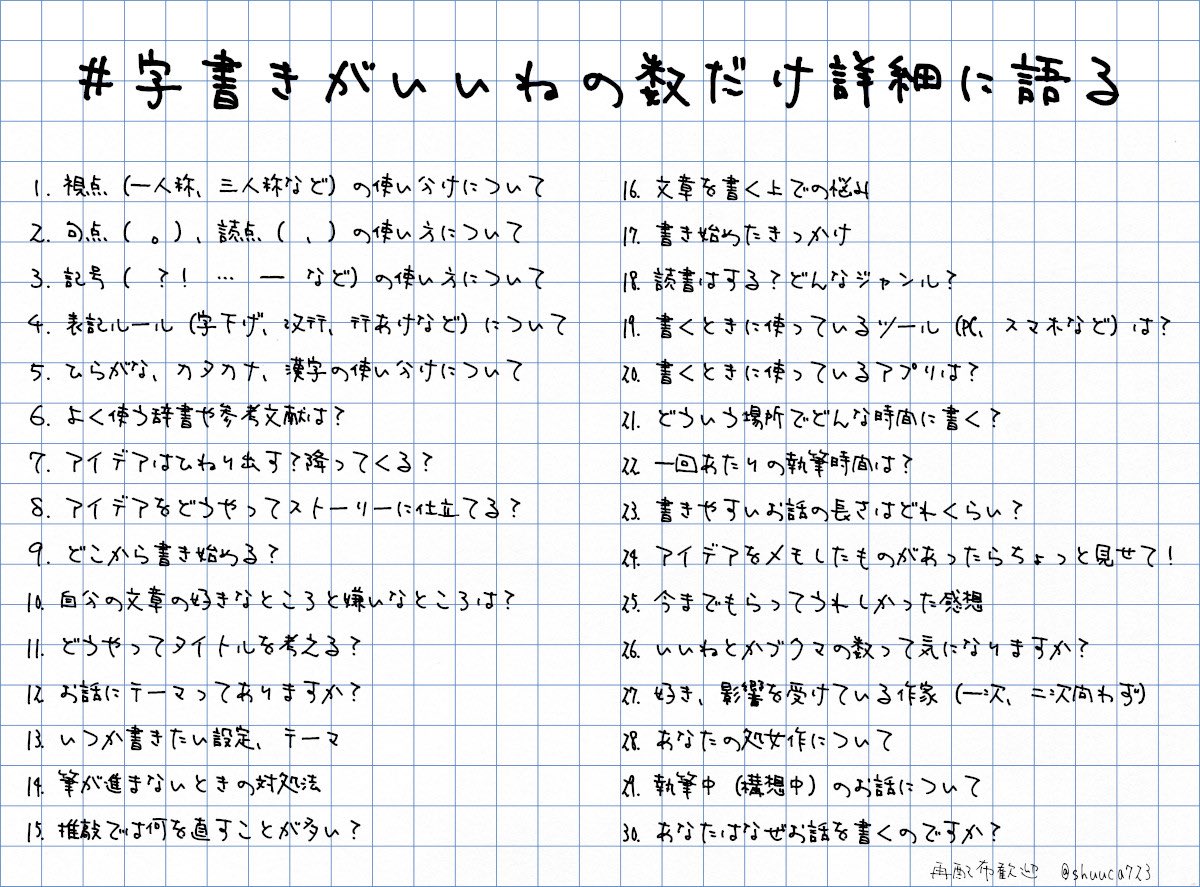 #字書きがいいねの数だけ詳細に語る
1. 視点（一人称、三人称など）の使い分けについて
2.句点（ 。）、読点（ 、）の使い方について
3. 記号（ ？！ … ― など）の使い方について
4. 表記ルール（字下げ、改行、行あけなど）について
5. ひらがな、カタカナ、漢字の使い分けについて
6. よく使う辞書や参考文献は？
7. アイデアはひねり出す？降ってくる？
8. アイデアをどうやってストーリーに仕立てる？
9. どこから書き始める？
10. 自分の文章の好きなところと嫌いなところは？
11. どうやってタイトルを考える？
12. お話にテーマってありますか？
13. いつか書きたい設定、テーマ
14. 筆が進まないときの対処法
15. 推敲では何を直すことが多い？
16. 文章を書く上での悩み
17. 書き始めたきっかけ
18. 読書はする？どんなジャンル？
19. 書くときに使っているツール（PC、スマホなど）は？
20. 書くときに使っているアプリは？
21. どういう場所でどんな時間に書く？
22. 一回あたりの執筆時間は？
23. 書きやすいお話の長さはどれくらい？
24. アイデアをメモしたものがあったらちょっと見せて！
25. 今までもらってうれしかった感想
26. いいねとかブクマの数って気になりますか？
27. 好き、影響を受けている作家（一次、二次問わず）
28. あなたの処女作について
29. 執筆中（構想中）のお話について
30. あなたはなぜお話を書くのですか？
再配布歓迎 @shuuca723